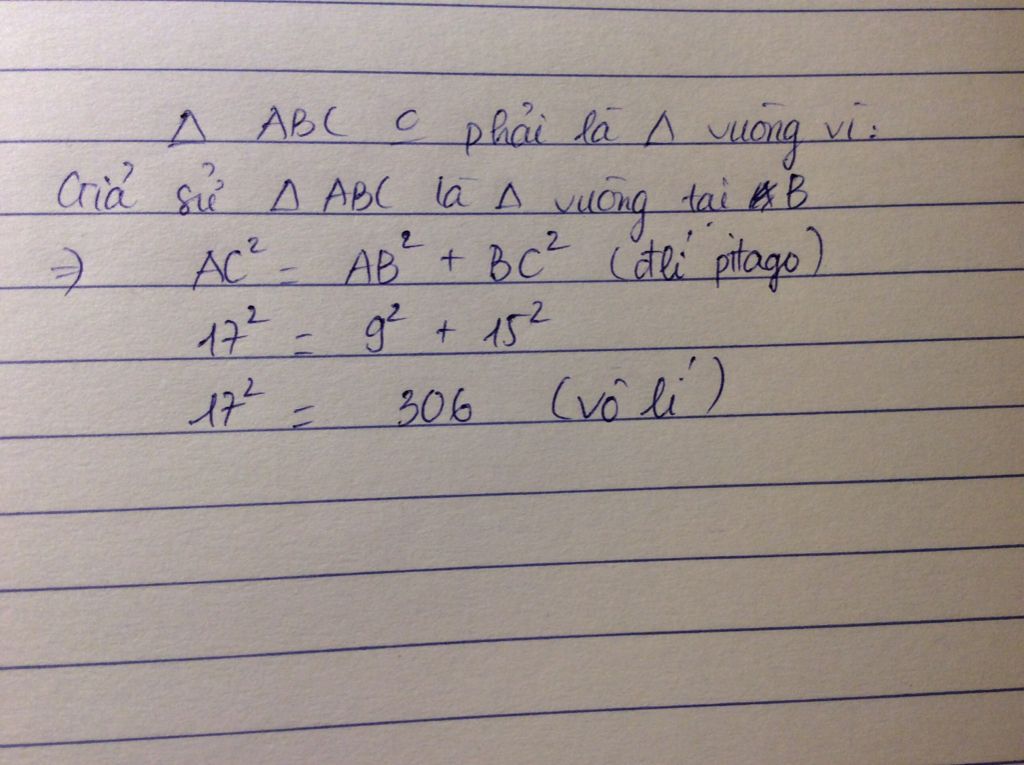 Δ ABC O phải là Δ vuông vì:
Giả sử Δ ABC là Δ vuông tại B
=> AC² = AB² + BC² (đlí pitago)
17² = 9² + 15²
17² = 306 (vô lí)